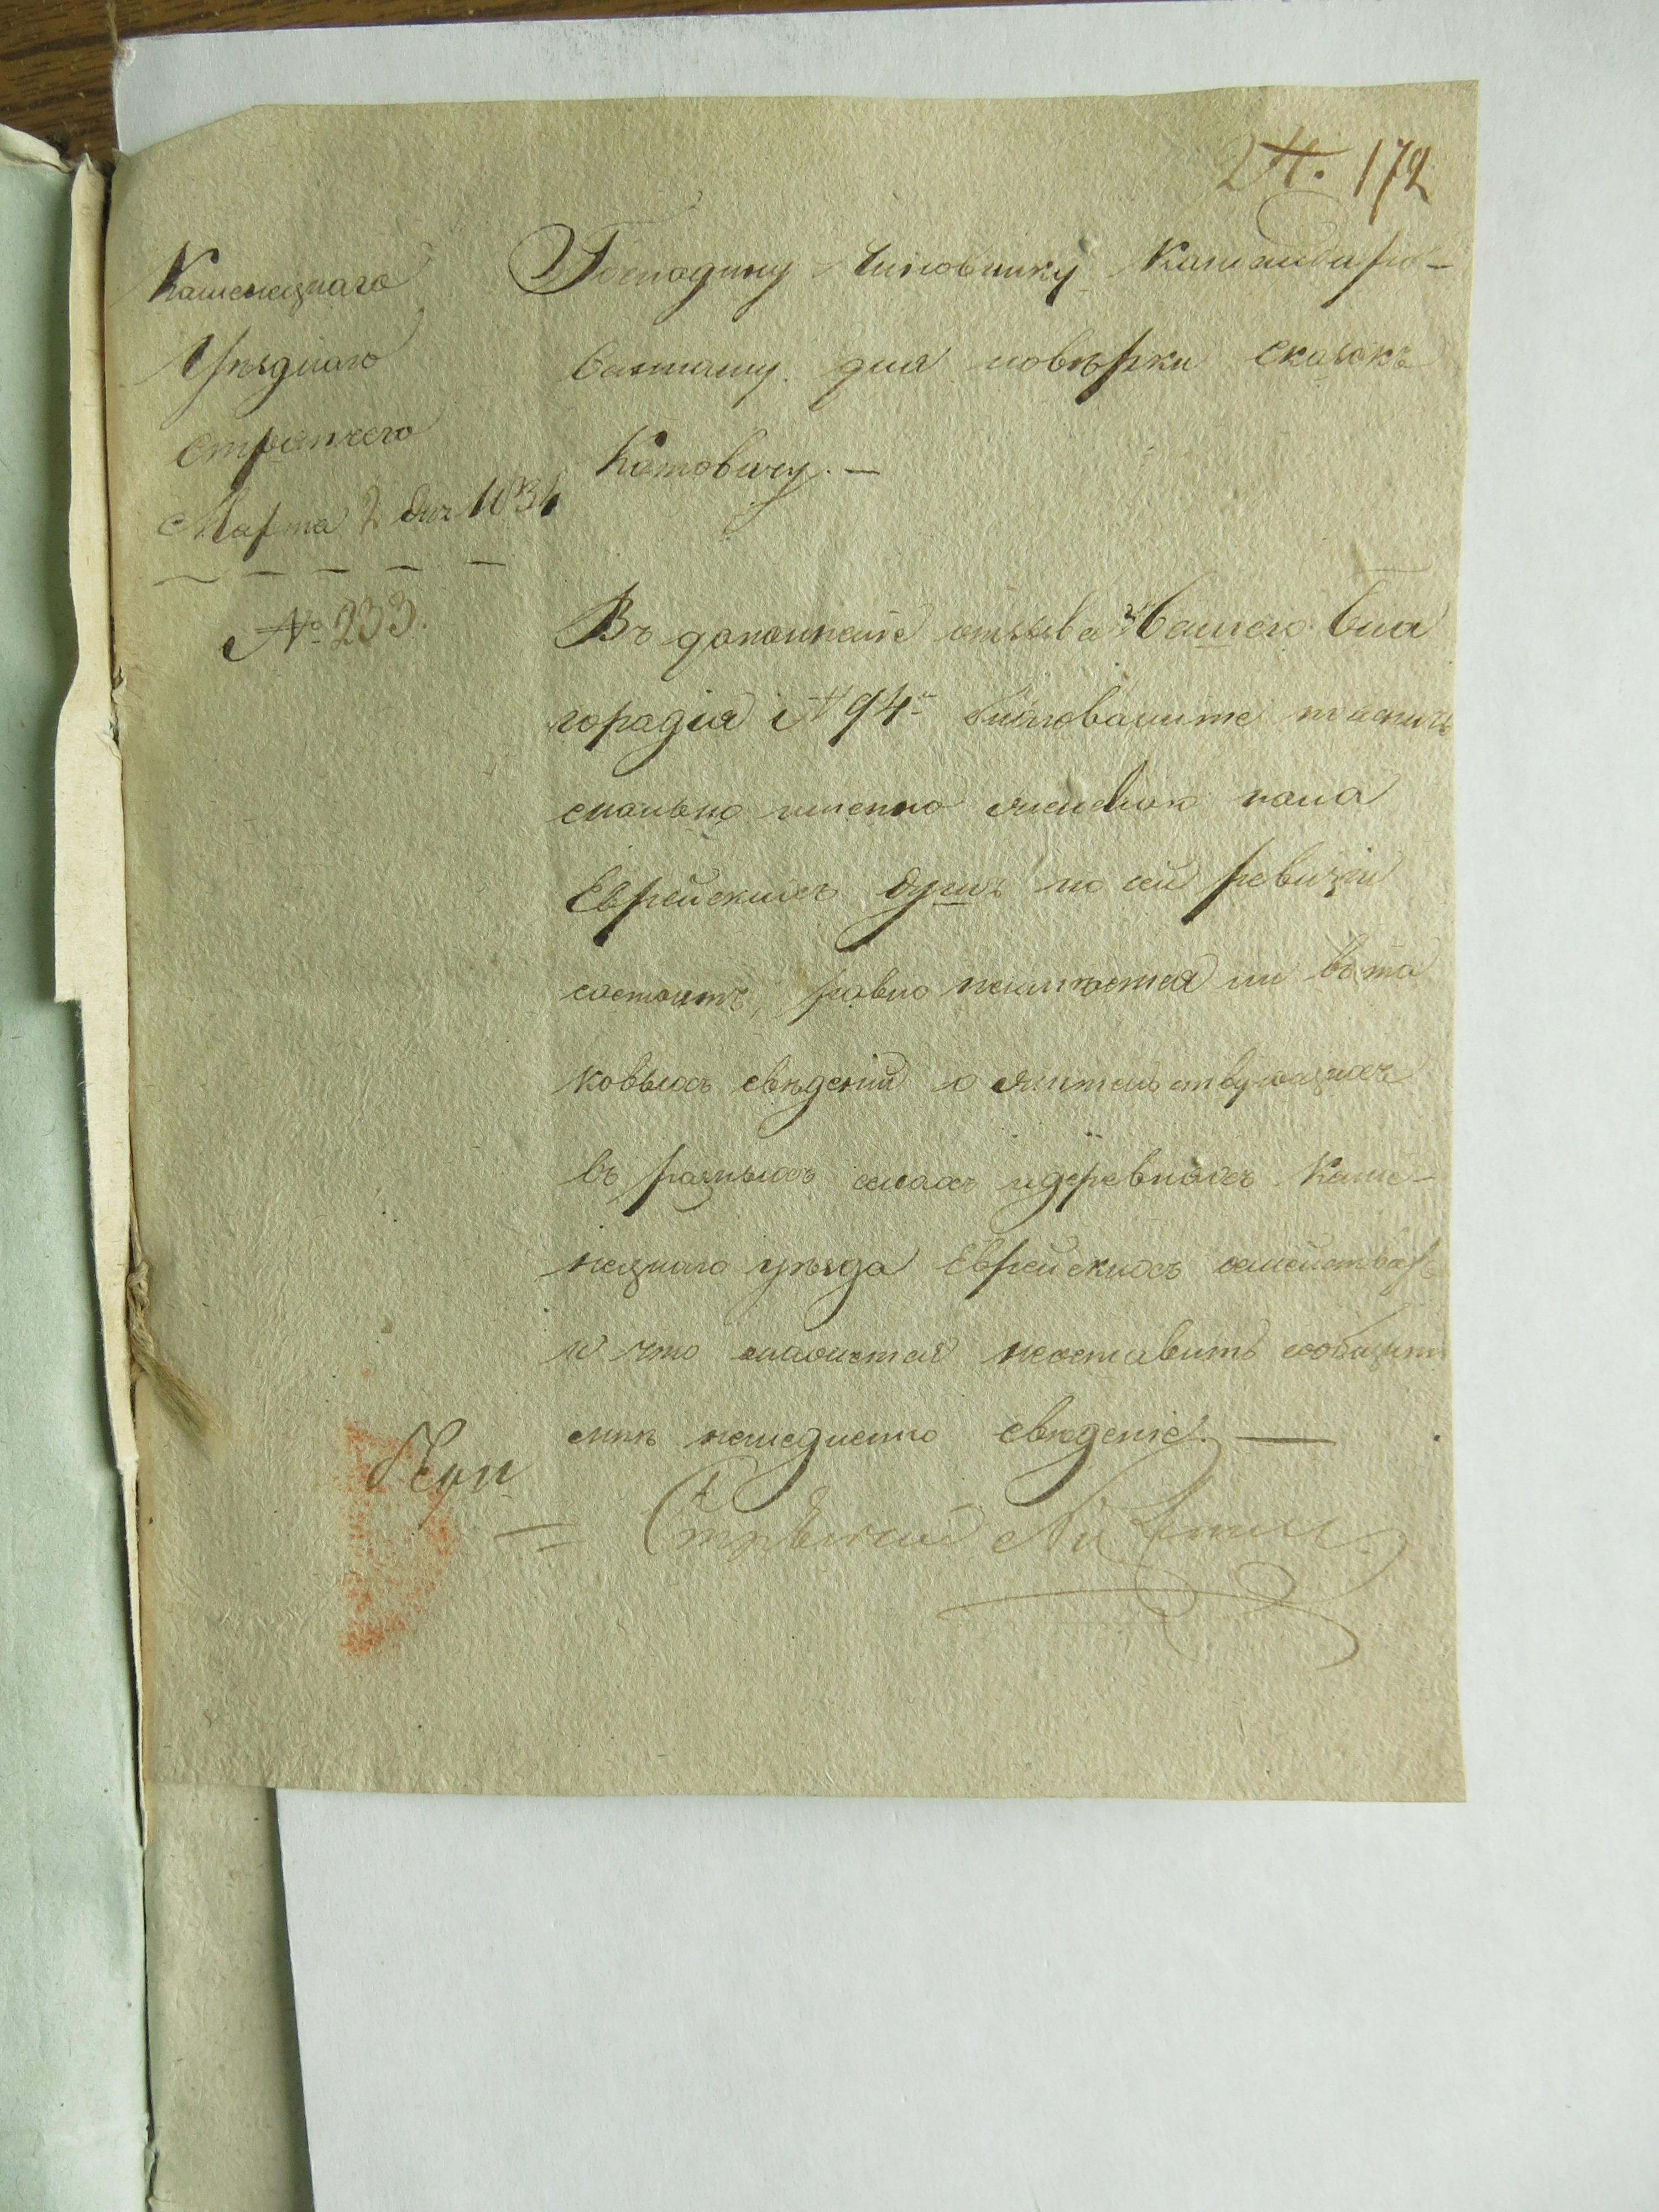 172
Каменецкаго
Уѣзднаго
Стряпчего
Марта 2 дня 1834
№ 233.
Господину Чиновнику Командиро-
ванному для повѣрки сказокъ
Котовичу. —
Въ дополненіе отзыва Вашего Бла
городія № 94 благоволите
сколько именно мужеска пола
Еврейскихъ душъ по сей ревизіи
состоитъ, равно неимѣется ли въ та
ковыхъ свѣденій о жительствующихъ
въ разныхъ селахъ идеревнахъ Каме-
нецкаго уѣзда Еврейскихъ семействахъ
и что окажется неоставить сообщить
мнѣ немедленно свѣденіе. —
Стряпчий